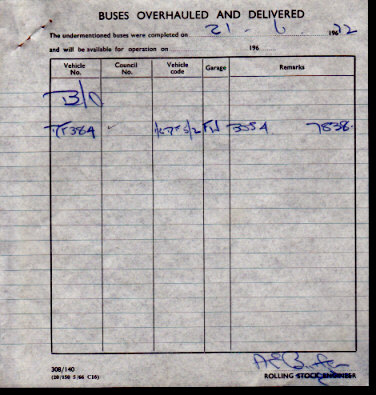 BUSES OVERHAULED AND DELIVERED
The undermentioned buses were completed on 21 - 6 196
and will be available for operation on 196
Vehicle No. Council No. Vehicle code Garage Remarks
B/O
384 3554 7838
308/140
(20/150 5/66 C16)
ROLLING STOCK ENGINEER